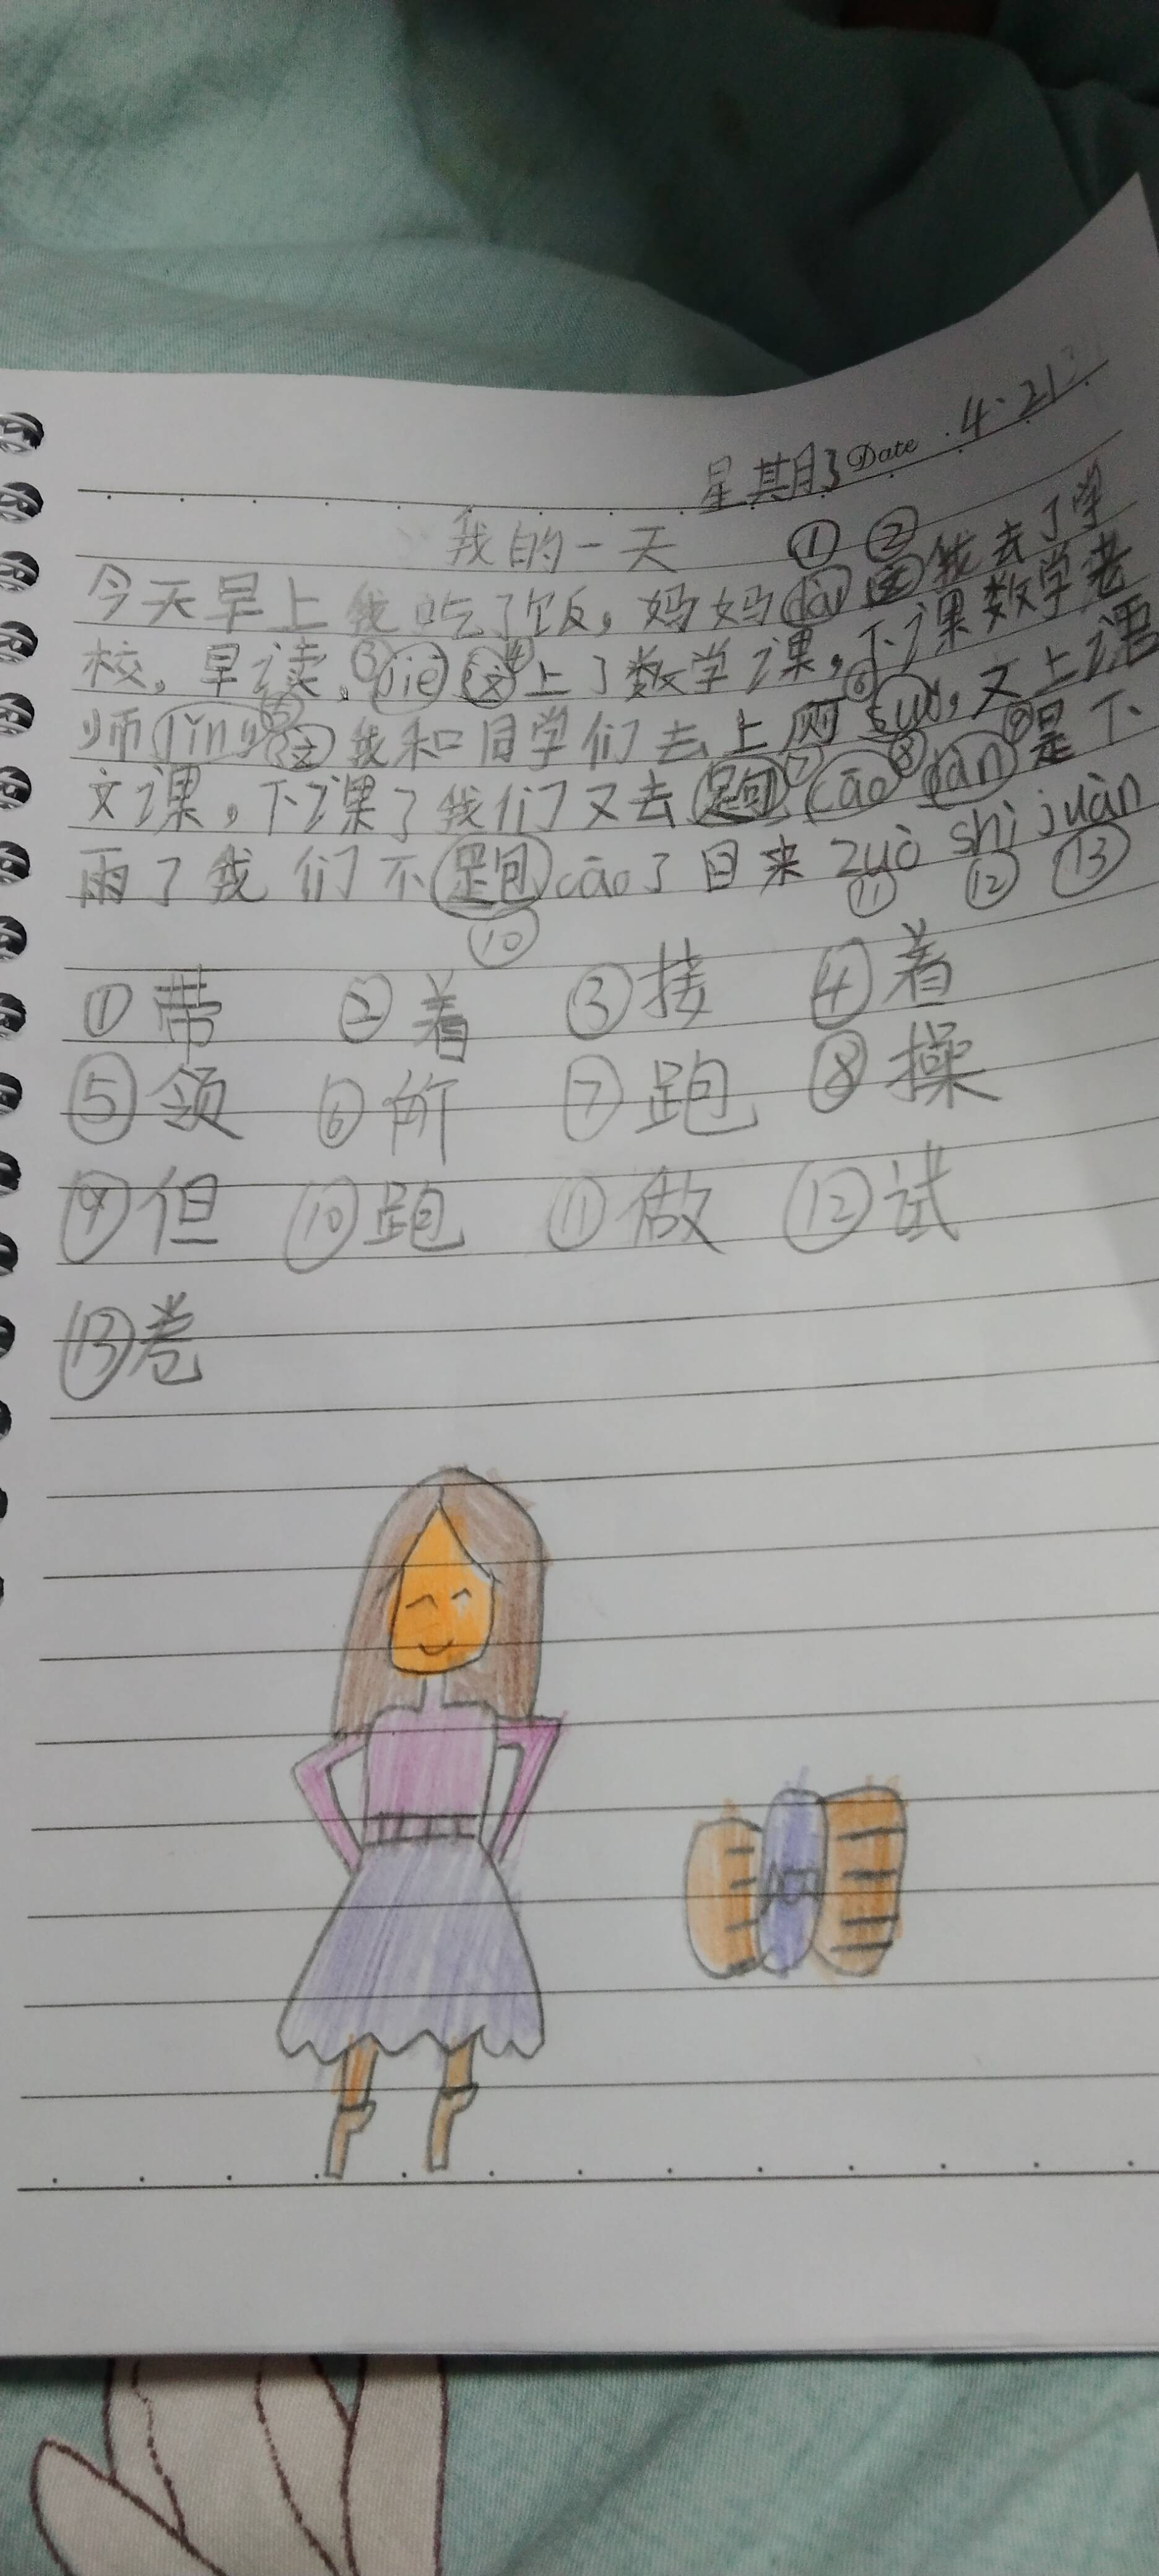 星期3 Date 4.21
我的一天 ① ②
今天早上我吃了饭,妈妈dài这我去了学
校。早读。③jiē这④上了数学课,下课数学老
师líng⑤这我和同学们去上厕⑥suǒ,又上课
文课,下课了我们又去跑⑦cāo⑧dàn⑨是下
雨了我们不跑cāo了回来zuò shì juàn
⑩ ⑪ ⑫ ⑬
①带 ②着 ③接 ④着
⑤领 ⑥所 ⑦跑 ⑧操
⑨但 ⑩跑 ⑪做 ⑫试
⑬卷